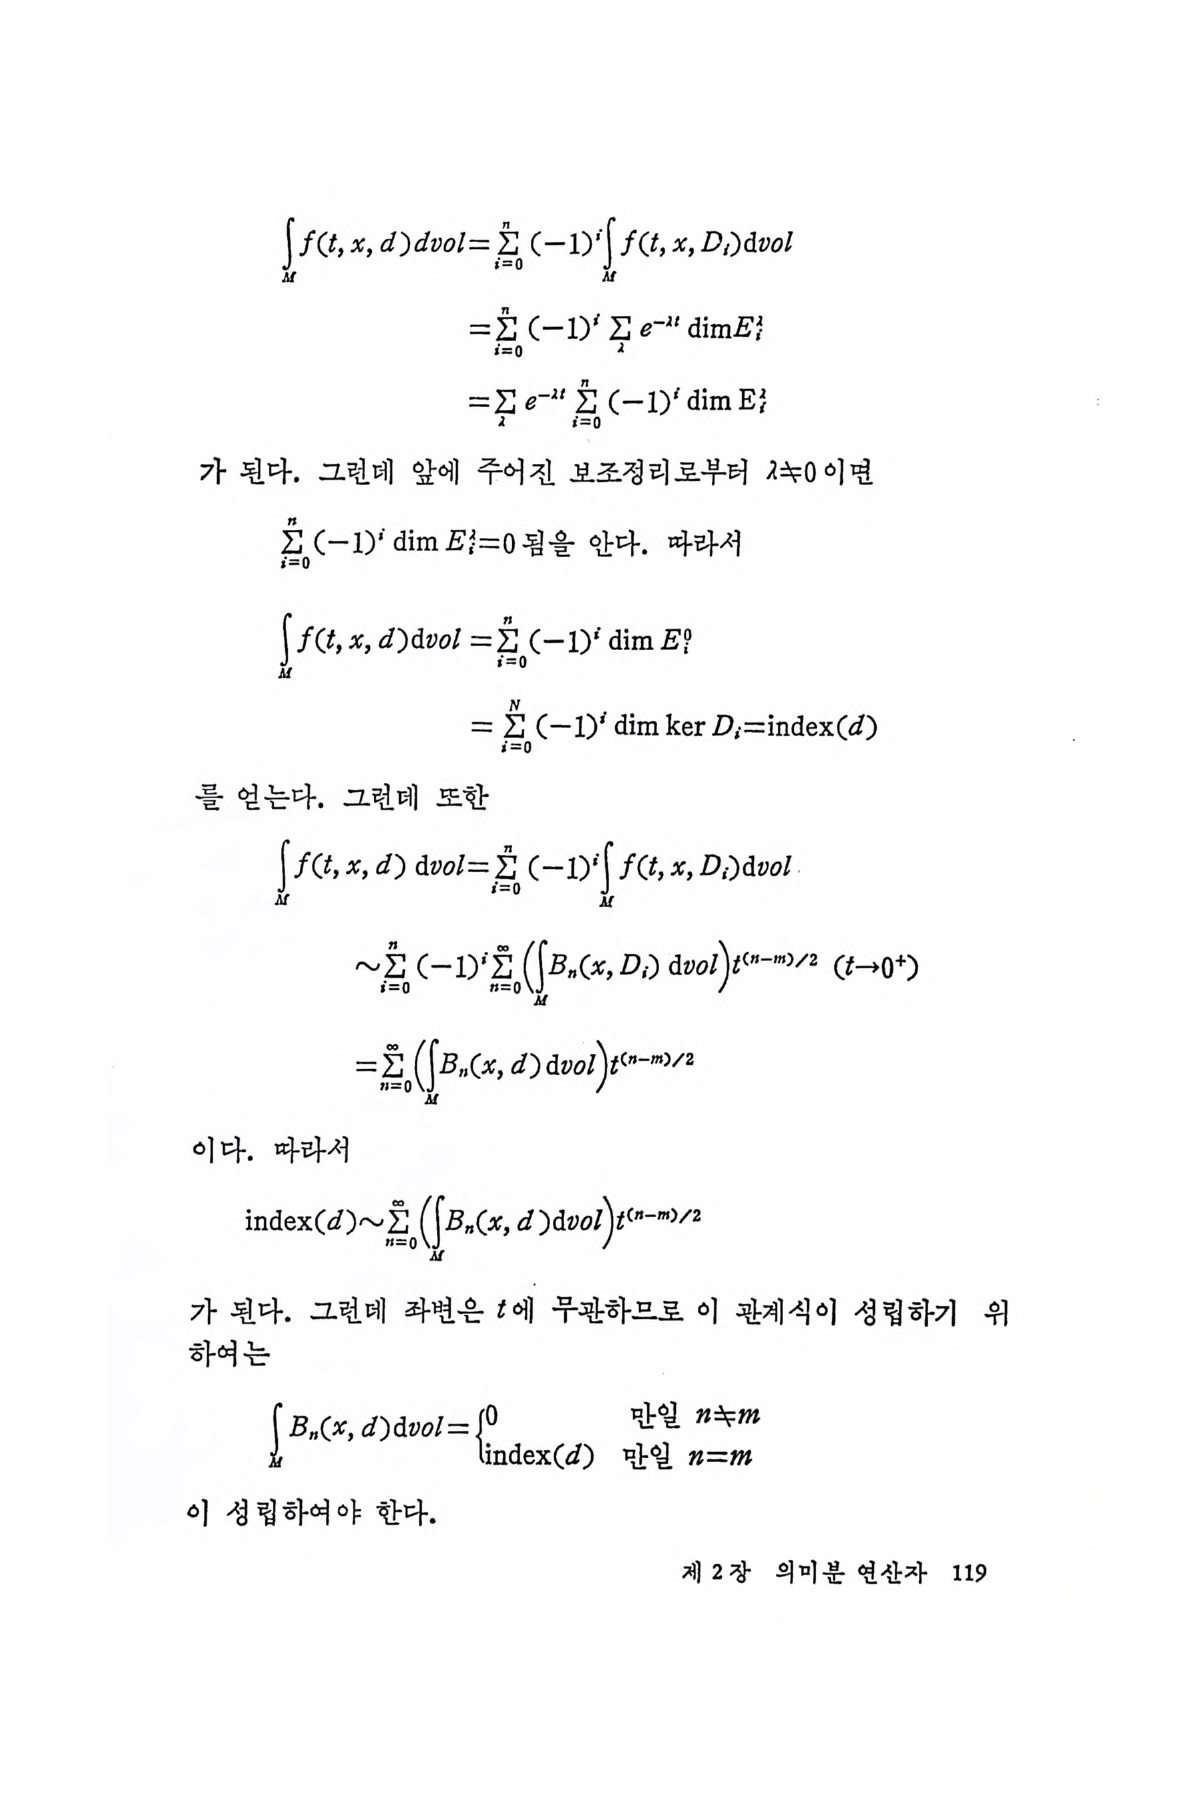 ∫_M f(t, x, d)dvol = Σ_{i=0}^{n} (−1)^i ∫_M f(t, x, D_i)dvol
= Σ_{i=0}^{n} (−1)^i Σ_λ e^{−λt} dimE_i^λ
= Σ_λ e^{−λt} Σ_{i=0}^{n} (−1)^i dim E_i^λ
가 된다. 그런데 앞에 주어진 보조정리로부터 λ≠0이면
Σ_{i=0}^{n} (−1)^i dim E_i^λ=0됨을 안다. 따라서
∫_M f(t, x, d)dvol = Σ_{i=0}^{n} (−1)^i dim E_i^0
= Σ_{i=0}^{N} (−1)^i dim ker D_i=index(d)
를 얻는다. 그런데 또한
∫_M f(t, x, d) dvol = Σ_{i=0}^{n} (−1)^i ∫_M f(t, x, D_i)dvol
∼ Σ_{i=0}^{n} (−1)^i Σ_{n=0}^{∞} (∫_M B_n(x, D_i) dvol)t^{(n−m)/2} (t→0⁺)
= Σ_{n=0}^{∞} (∫_M B_n(x, d)dvol)t^{(n−m)/2}
이다. 따라서
index(d)∼ Σ_{n=0}^{∞} (∫_M B_n(x, d)dvol)t^{(n−m)/2}
가 된다. 그런데 좌변은 t에 무관하므로 이 관계식이 성립하기 위
하여는
∫_M B_n(x, d)dvol = {0 만일 n≠m
index(d) 만일 n=m
이 성립하여야 한다.
제 2 장 의미분 연산자 119